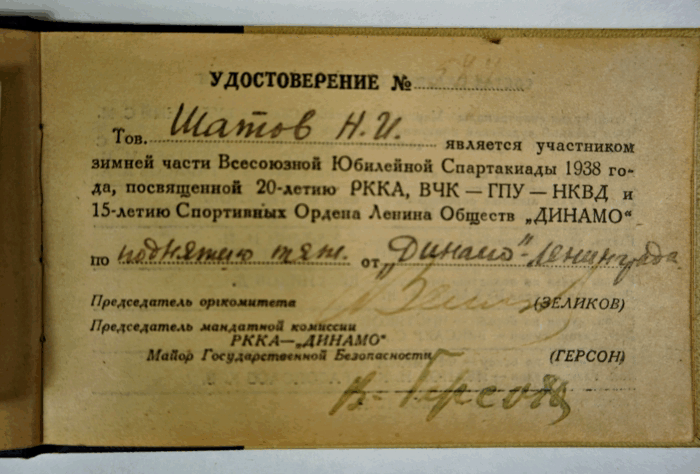 УДОСТОВЕРЕНИЕ №
Тов. Шатов Н.И. является участником
зимней части Всесоюзной Юбилейной Спартакиады 1938 го-
да, посвященной 20-летию РККА, ВЧК — ГПУ — НКВД и
15-летию Спортивных Ордена Ленина Обществ „ДИНАМО“
по поднятию тяж. от „Динамо"-Ленинграда
Председатель оргкомитета (ЗЕЛИКОВ)
Председатель мандатной комиссии
РККА—„ДИНАМО“
Майор Государственной Безопасности (ГЕРСОН)
В. Герсон